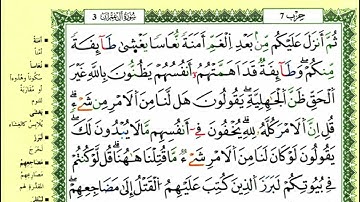 سُورَةُ آلِ عِمْرَانَ 3
حِزْب 7
ثُمَّ أَنزَلَ عَلَيْكُم مِّنۢ بَعْدِ الْغَمِّ أَمَنَةً نُّعَاسًا يَغْشَىٰ طَآئِفَةً
مِّنكُمْ وَطَآئِفَةٌ قَدْ أَهَمَّتْهُمُۥ أَنفُسُهُمْ يَظُنُّونَ بِاللَّهِ غَيْرَ
الْحَقِّ ظَنَّ الْجَٰهِلِيَّةِ يَقُولُونَ هَل لَّنَا مِنَ الْأَمْرِ مِن شَيْءٍ
قُلِ انَّ الْأَمْرَ كُلَّهُۥ لِلهِ يُخْفُونَ فِي أَنفُسِهِم مَّا لَا يُبْدُونَ لَكَ
يَقُولُونَ لَوْ كَانَ لَنَا مِنَ الْأَمْرِ شَيْءٌ مَّا قُتِلْنَا هَٰهُنَا قُل لَّوْ كُنتُمْ
فِي بُيُوتِكُمْ لَبَرَزَ الَّذِينَ كُتِبَ عَلَيْهِمُ الْقَتْلُ إِلَىٰ مَضَاجِعِهِمْ
أَمَنَةً
أَمْنًا
نُعَاسًا
سُكُونًا وَهُدُوءًا
يَغْشَى
لَبَرَزَ
لَخَرَجَ
مَضَاجِعِهِمْ